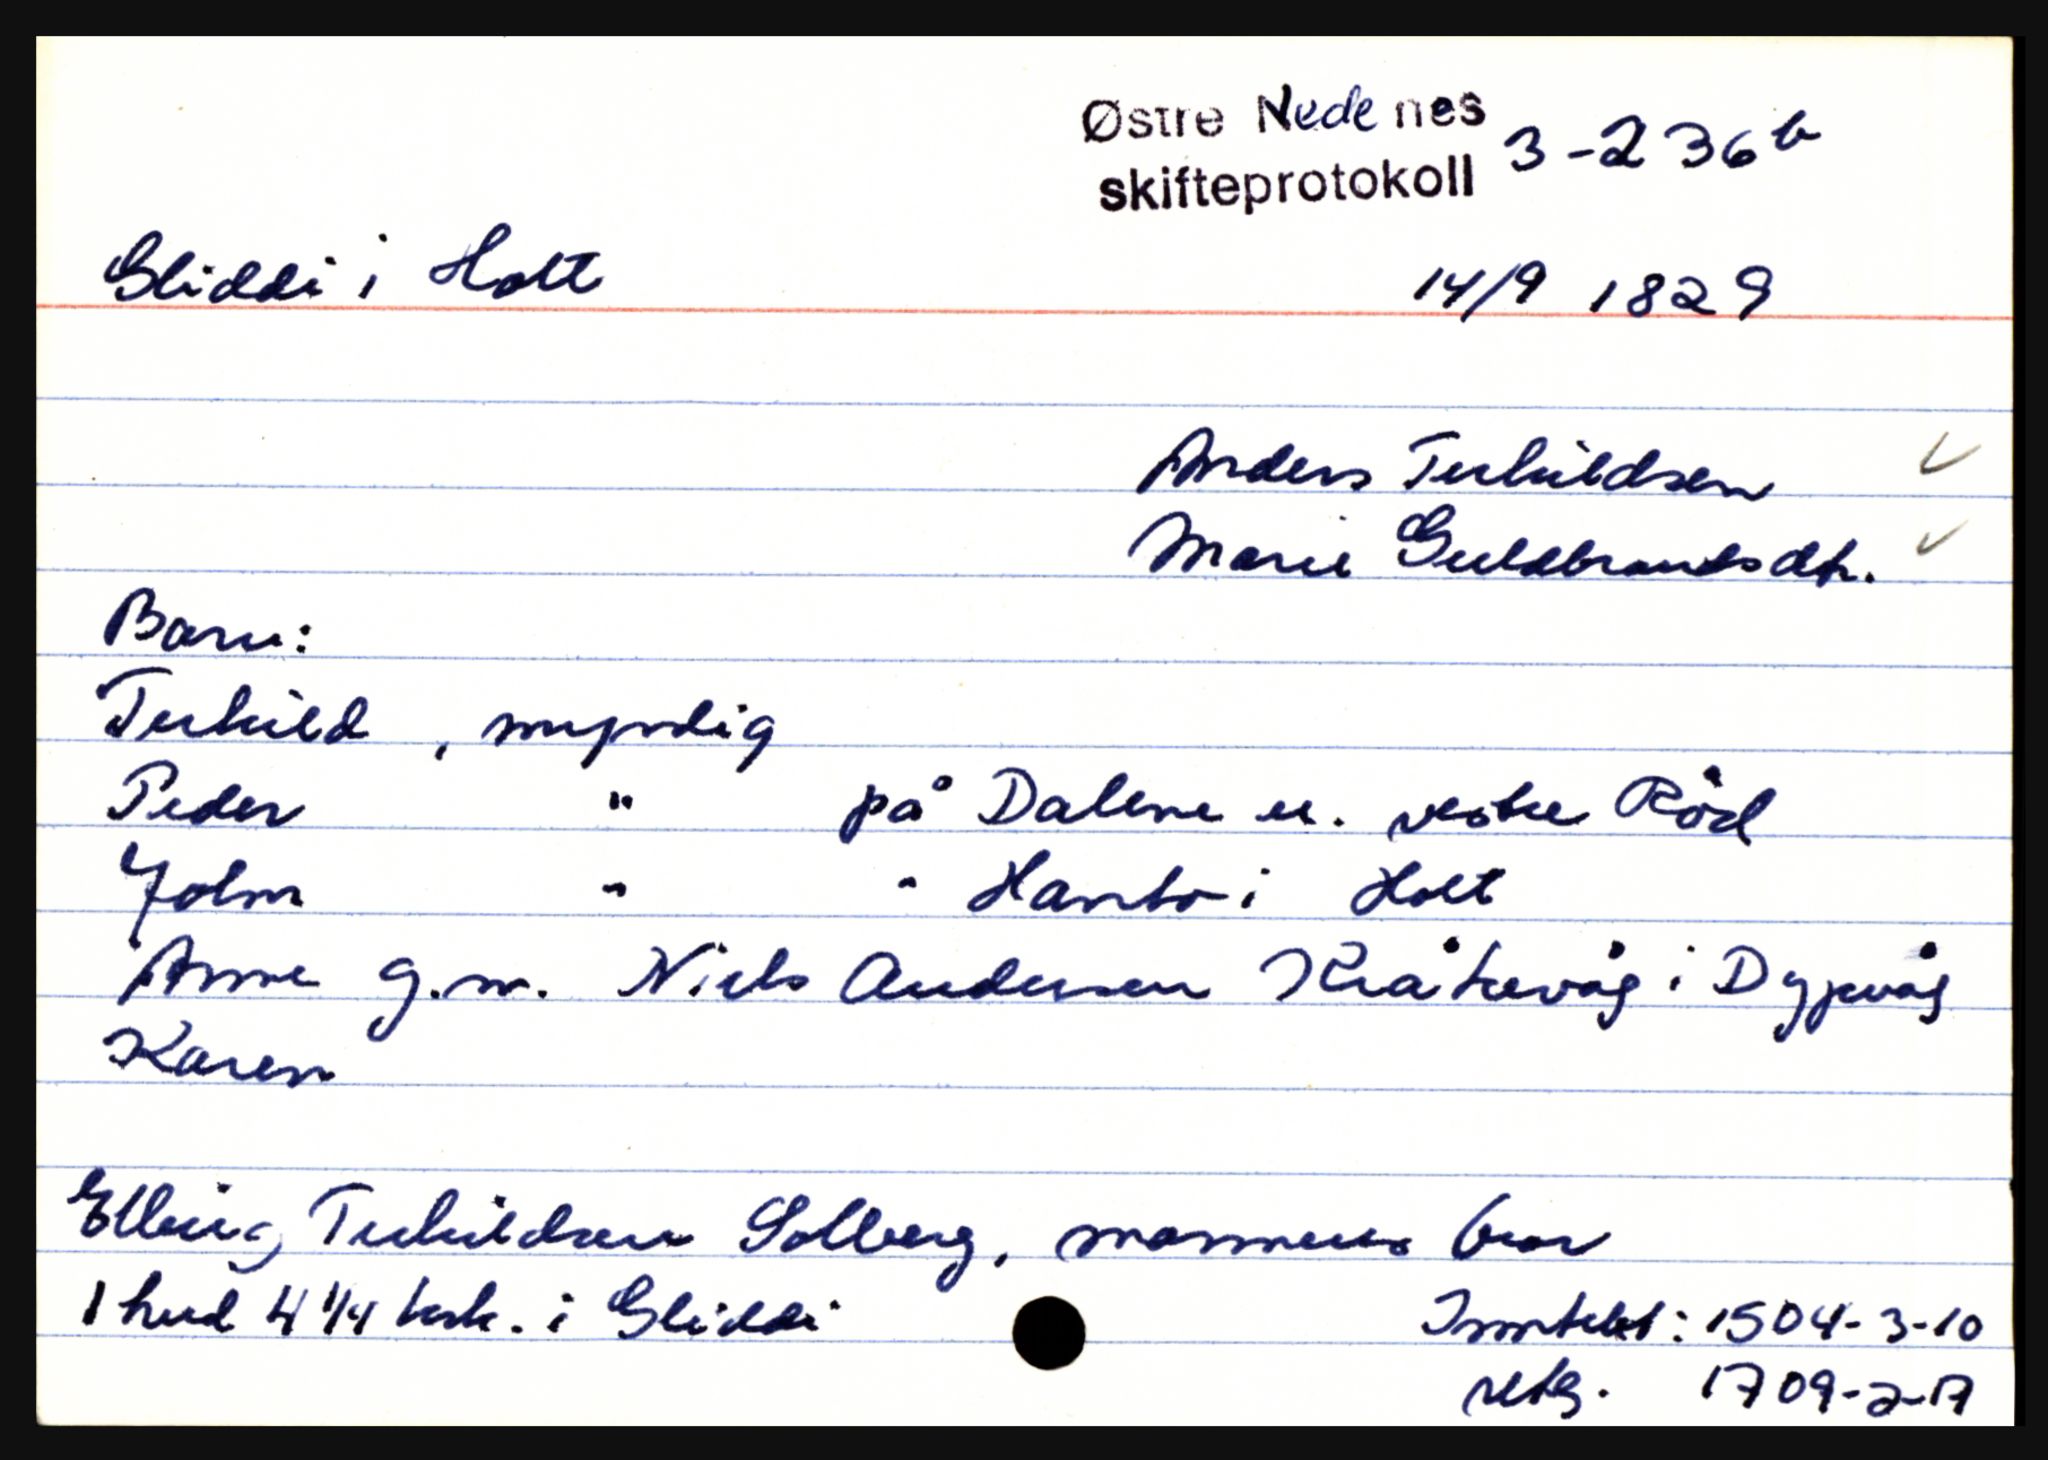 Østre Nedenes
skifteprotokoll 3-236b
Gliddi i Holt 14/9 1829
Anders Terkildsen
Marie Guldbrandsdtr.
Barn:
Terkild, myndig
Peder " på Dalene u. vestre Röd
John " " Hanto i Holt
Anne g.m. Niels Andersen Kråkevåg i Dypvåg
Karen
Elling Terkildsen Solberg, mannens bror
1 hud 4 1/4 ksk. i Gliddi
Inntekt: 1504-3-10
utg. 1709-2-17